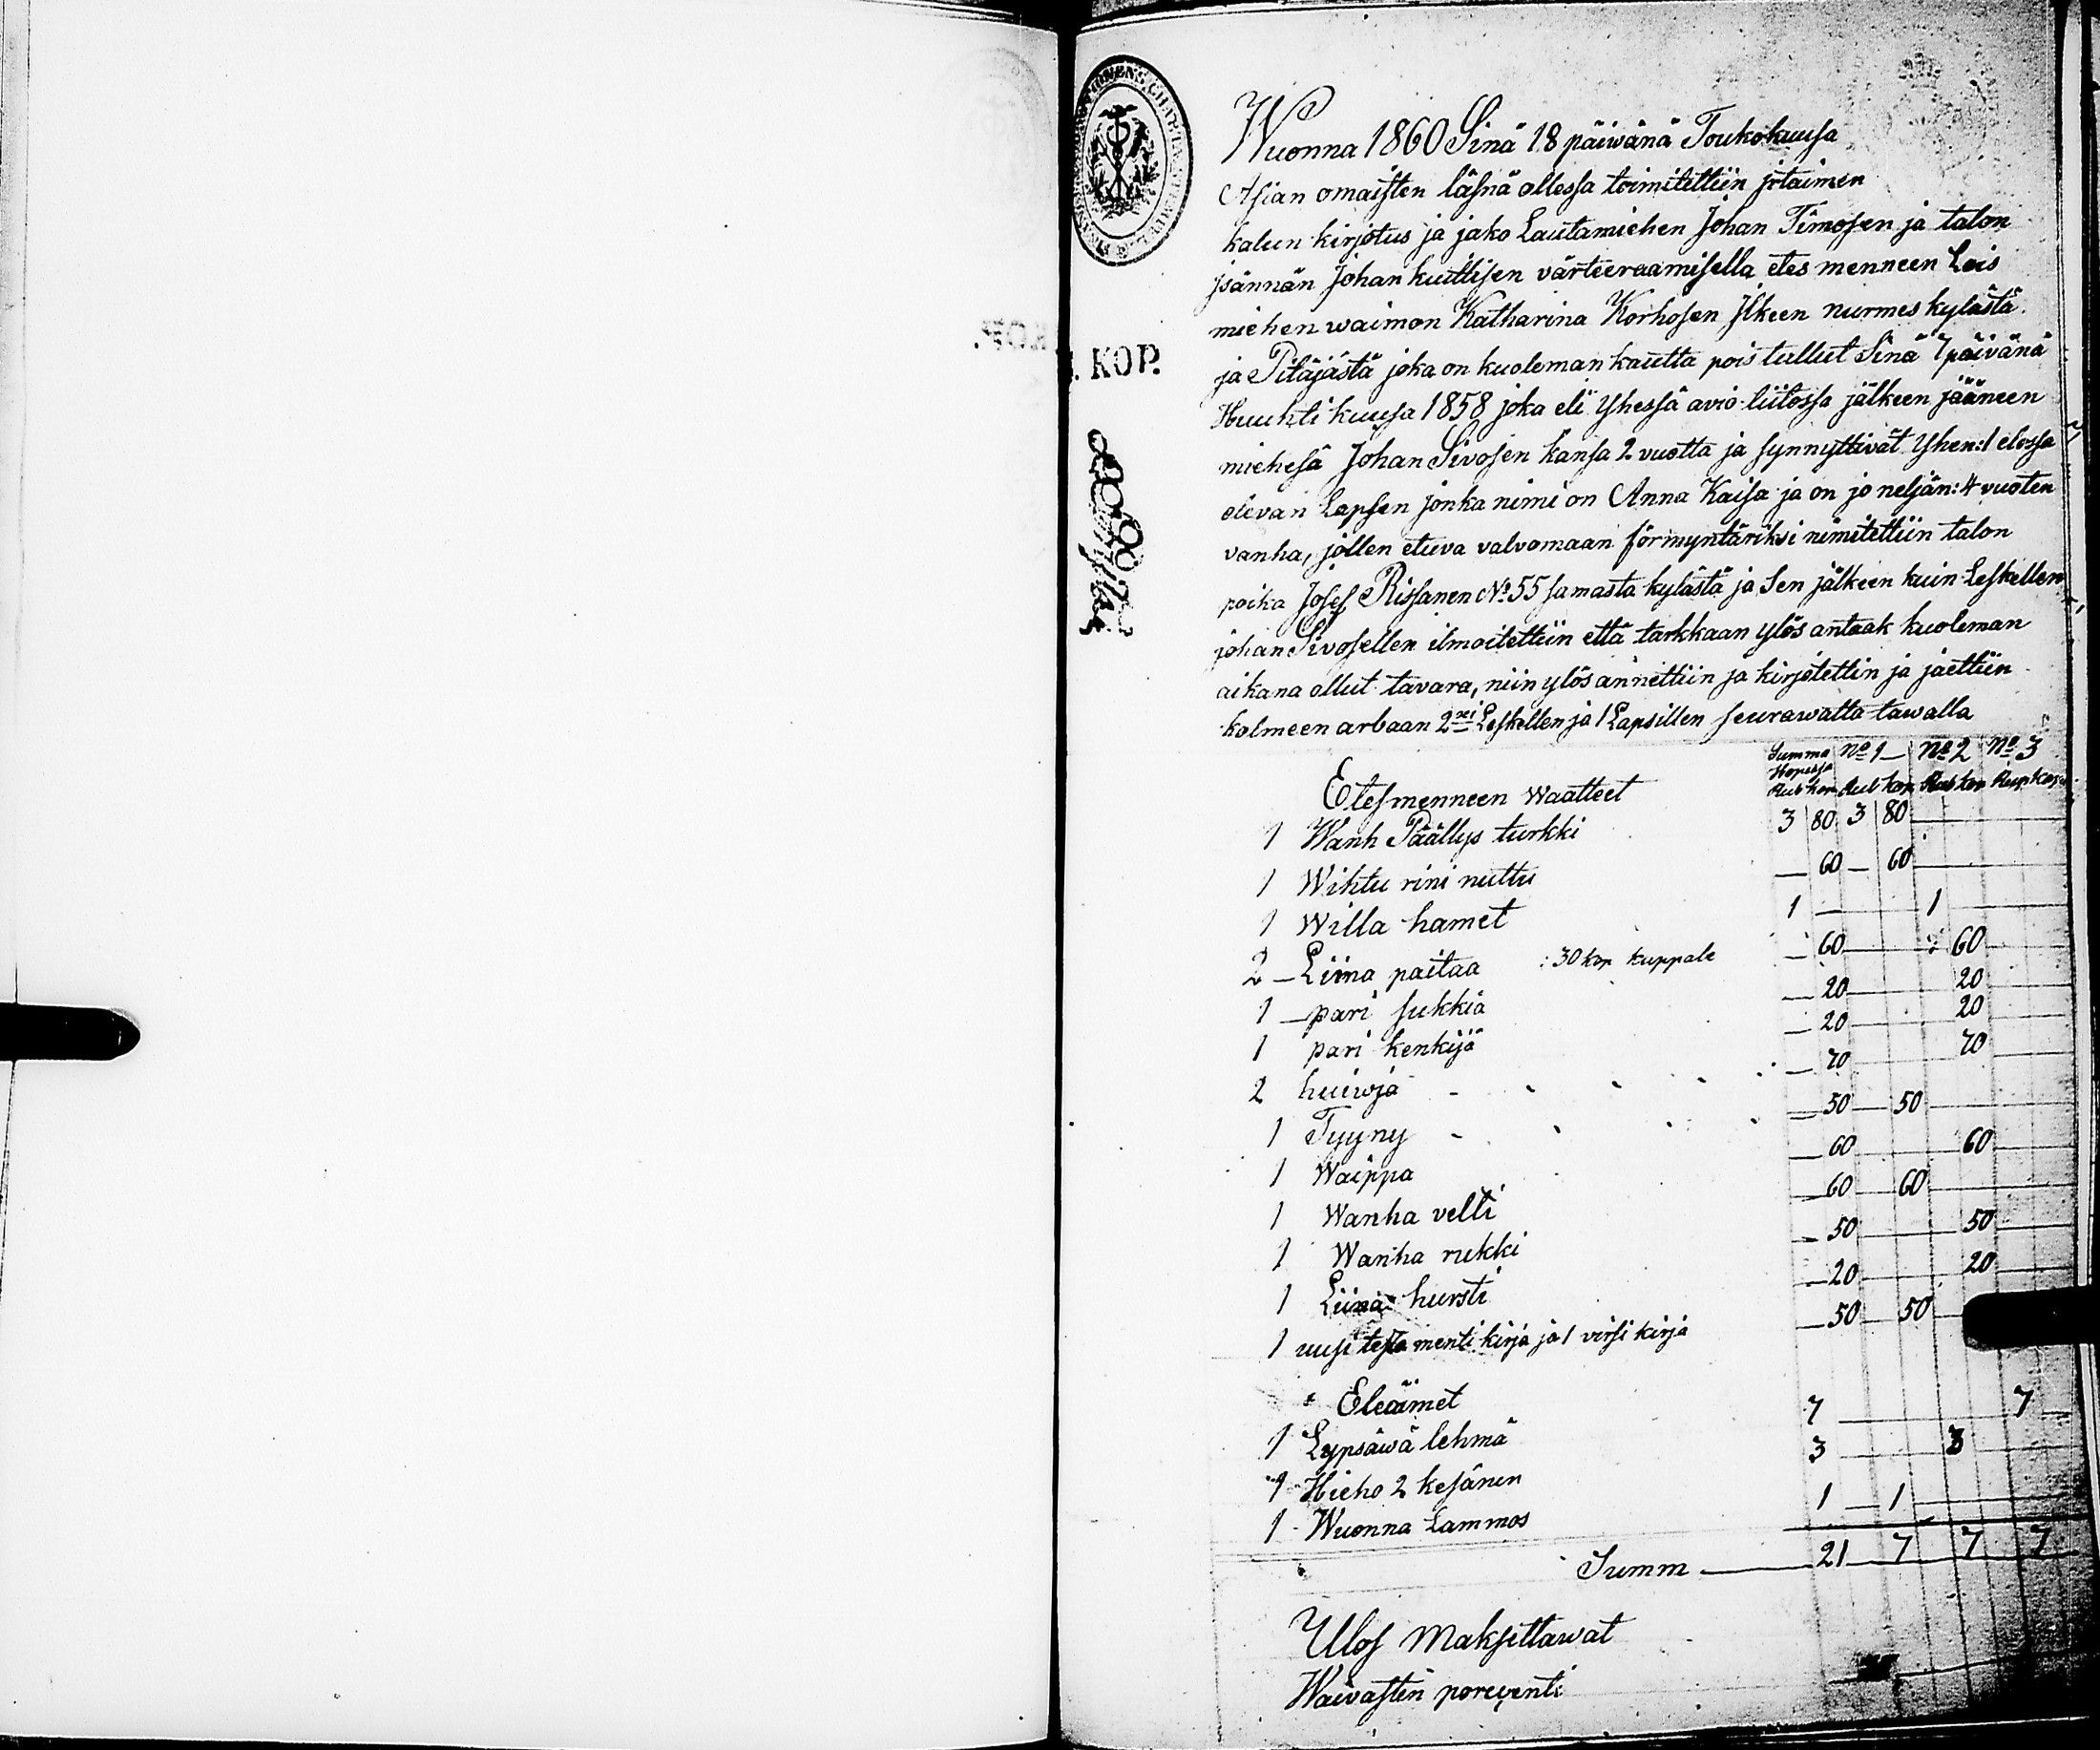 KOP.
Wuonna 1860 Sinä 18 päiwänä Toukokuusa
Asian omaisten läsnä ollessa toimitettiin jrtaimen
kalun kirjotus ja jako Lautamiehen Johan Timosen ja talon
jsännän Johan kuittisen värteeraamisella etes menneen Lois
miehen waimon Katharina Korhosen jlkeen nurmes kylästä
ja Pitäjästä joka on kuoleman kautta pois tullut Sinä 7 päivänä
Huuhti kuusa 1858 joka eli yhessä avio liitossa jälkeen jääneen
miehesä Johan Sivosen kansa 2 vuotta ja synnyttivät yhen: 1 elossa
olevan Lapsen jonka nimi on Anna Kaisa ja on jo neljän: 4 vuoten
vanha, jollen etuva valvomaan förmyntäriksi nimitettiin talon
poika Josef Rissanen No 55 samasta kylästä ja Sen jälkeen kuin Leskellen
johan Sivosellen ilmoitettiin että tarkkaan ylös antaak kuoleman
aikana ollut tavara, niin ylös annettiin ja kirjotettin ja jaettiin
kolmeen arbaan 2xi Leskellen ja 1 Lapsillen seurawatta tawalla
Summa Hopeissa No 1 No 2 No 3
Etesmenneen Waatteet Rub kop Rub kop Rub kop Rup kop
1 Wanh Päällys turkki 3 80 3 80
1 Wihtu rini nuttu 60 60
1 Willa hamet 1 1
2 Liina paitaa : 30 kop kappale 60 60
1 pari sukkia 20 20
1 pari kenkijä 20 20
2 huiwja 70 70
1 Tyyny 50 50
1 Waippa 60 60
1 Wanha velti 60 60
1 Wanha rukki 50 50
1 Liina hursti 20 20
1 uusi testa menti kirja ja 1 virsi kirja 50 50
Eleäimet
1 Lypsäwä lehmä 7 7
1 Hieho 2 kesänen 3 3
1 Wuonna Lammos 1 1
Summ 21 7 7 7
Ulos Maksettawat
Waivasten